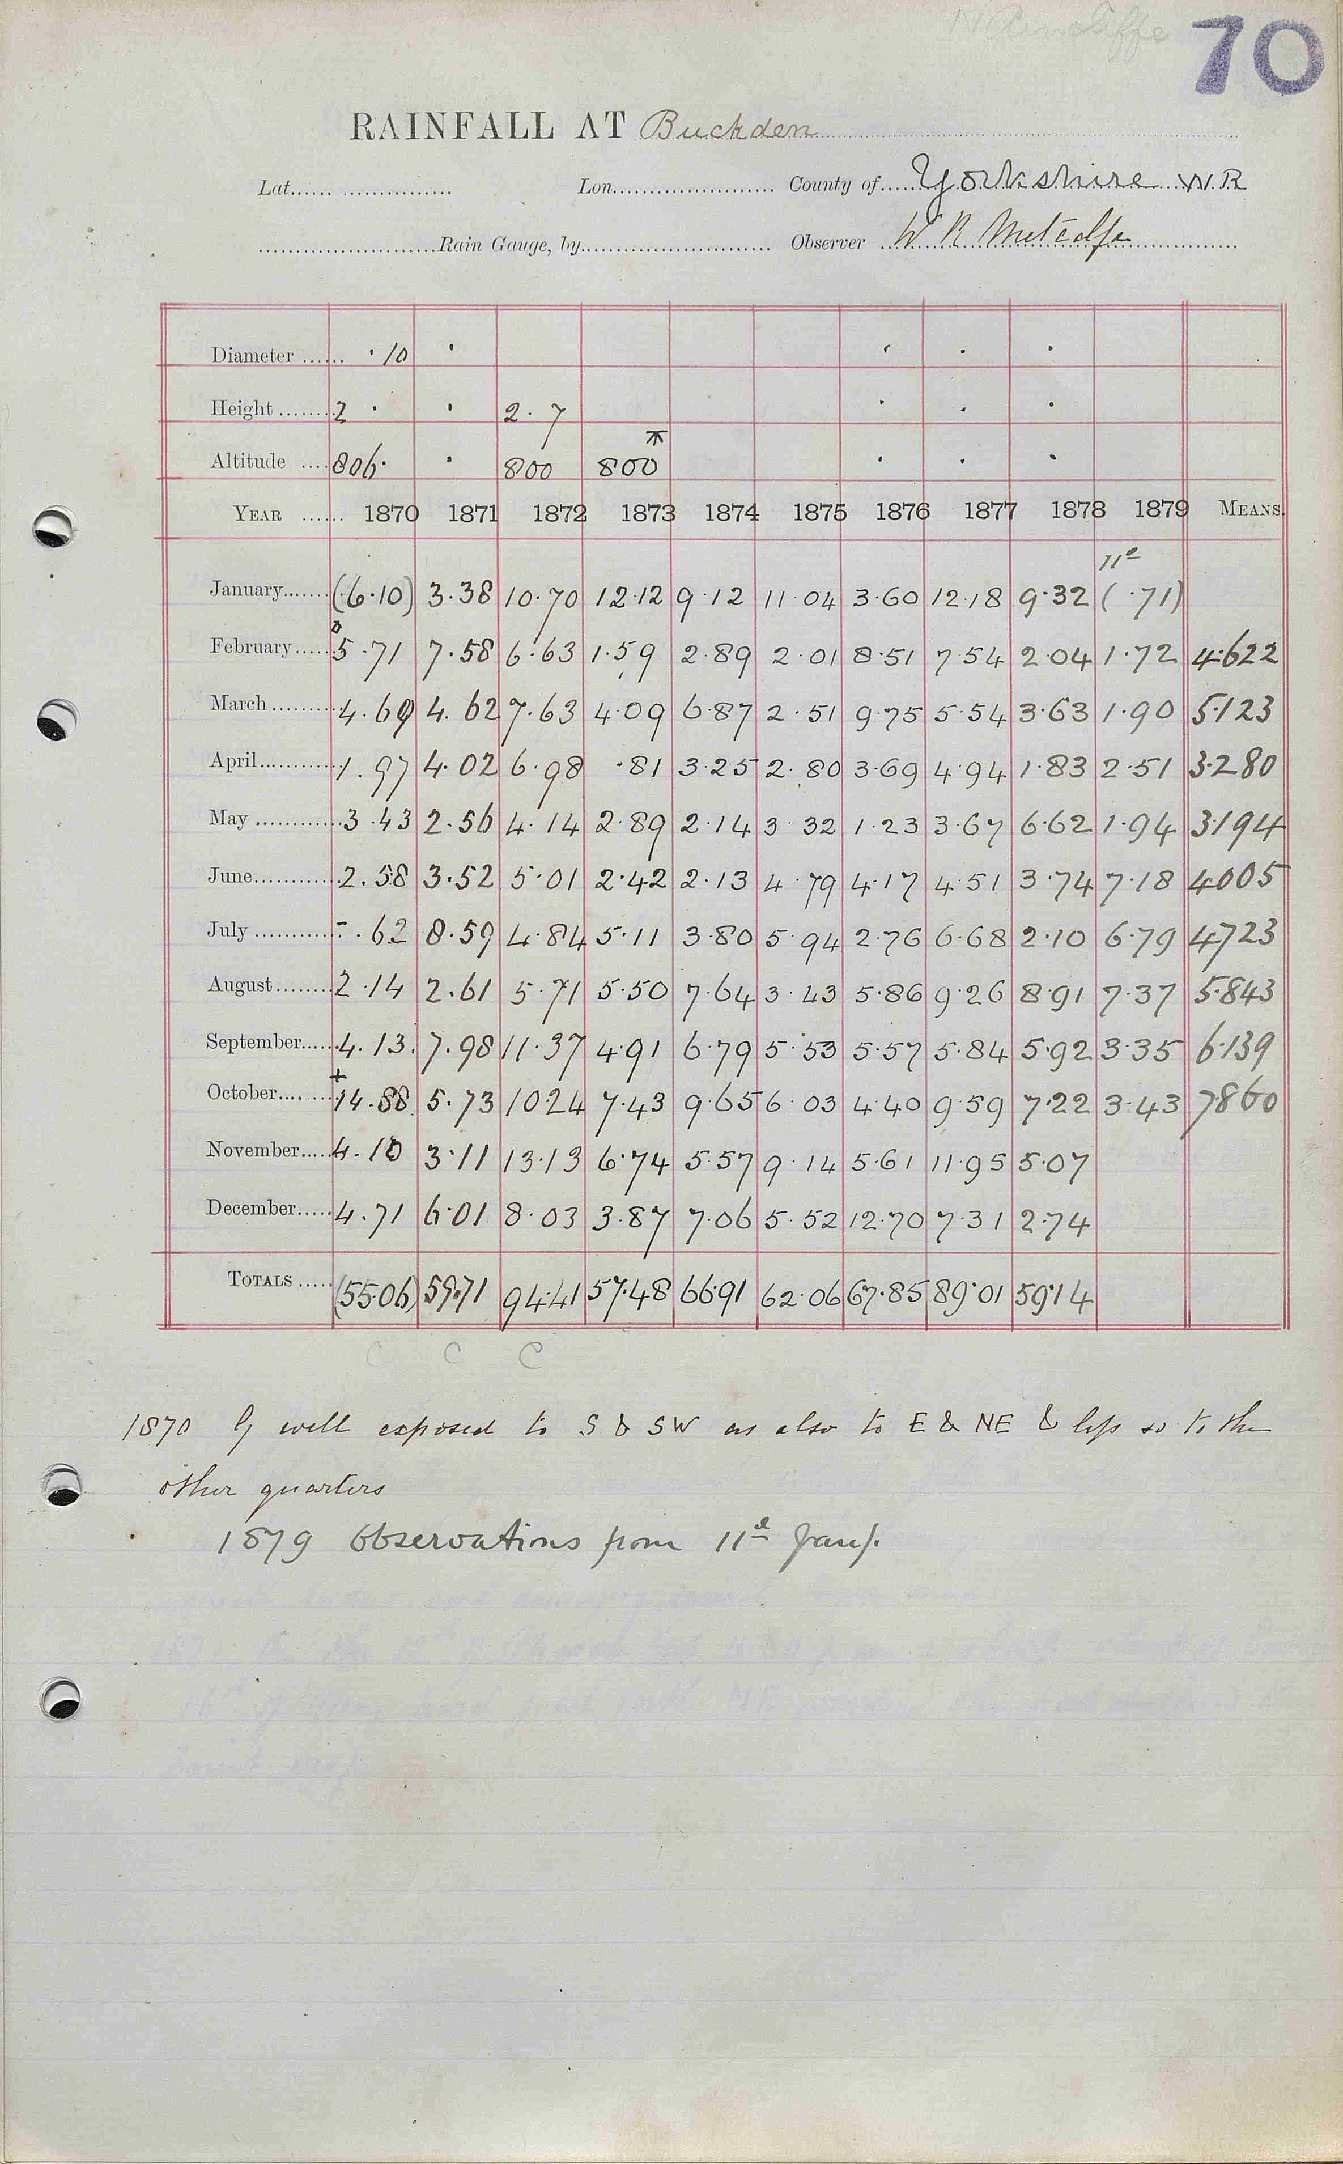 70
RAINFALL AT Buckden
Lat. Lon. County of Yorkshire W.R
Rain Gauge, by Observer W R Metcalfe
Diameter ·10
Height 2 · 2·7
Altitude 806· 800 800
YEAR 1870 1871 1872 1873 1874 1875 1876 1877 1878 1879 MEANS.
11th
January (6·10) 3·38 10·70 12·12 9·12 11·04 3·60 12·18 9·32 (·71)
February 5·71 7·58 6·63 1·59 2·89 2·01 8·51 7·54 2·04 1·72 4·622
March 4·69 4·62 7·63 4·09 6·87 2·51 9·75 5·54 3·63 1·90 5·123
April 1·97 4·02 6·98 ·81 3·25 2·80 3·69 4·94 1·83 2·51 3·280
May 3·43 2·56 4·14 2·89 2·14 3·32 1·23 3·67 6·62 1·94 3·194
June 2·58 3·52 5·01 2·42 2·13 4·79 4·17 4·51 3·74 7·18 4005
July -·62 8·59 4·84 5·11 3·80 5·94 2·76 6·68 2·10 6·79 4723
August 2·14 2·61 5·71 5·50 7·64 3·43 5·86 9·26 8·91 7·37 5·843
September 4·13 7·98 11·37 4·91 6·79 5·53 5·57 5·84 5·92 3·35 6·139
October 14·88 5·73 10·24 7·43 9·65 6·03 4·40 9·59 7·22 3·43 7860
November 4·10 3·11 13·13 6·74 5·57 9·14 5·61 11·95 5·07
December 4·71 6·01 8·03 3·87 7·06 5·52 12·70 7·31 2·74
TOTALS (55·06) 59·71 94·41 57·48 66·91 62·06 67·85 89·01 59·14
C C C
1870 G well exposed to S & SW as also to E & NE & less so to the
other quarters
1879 Observations from 11th Jany.